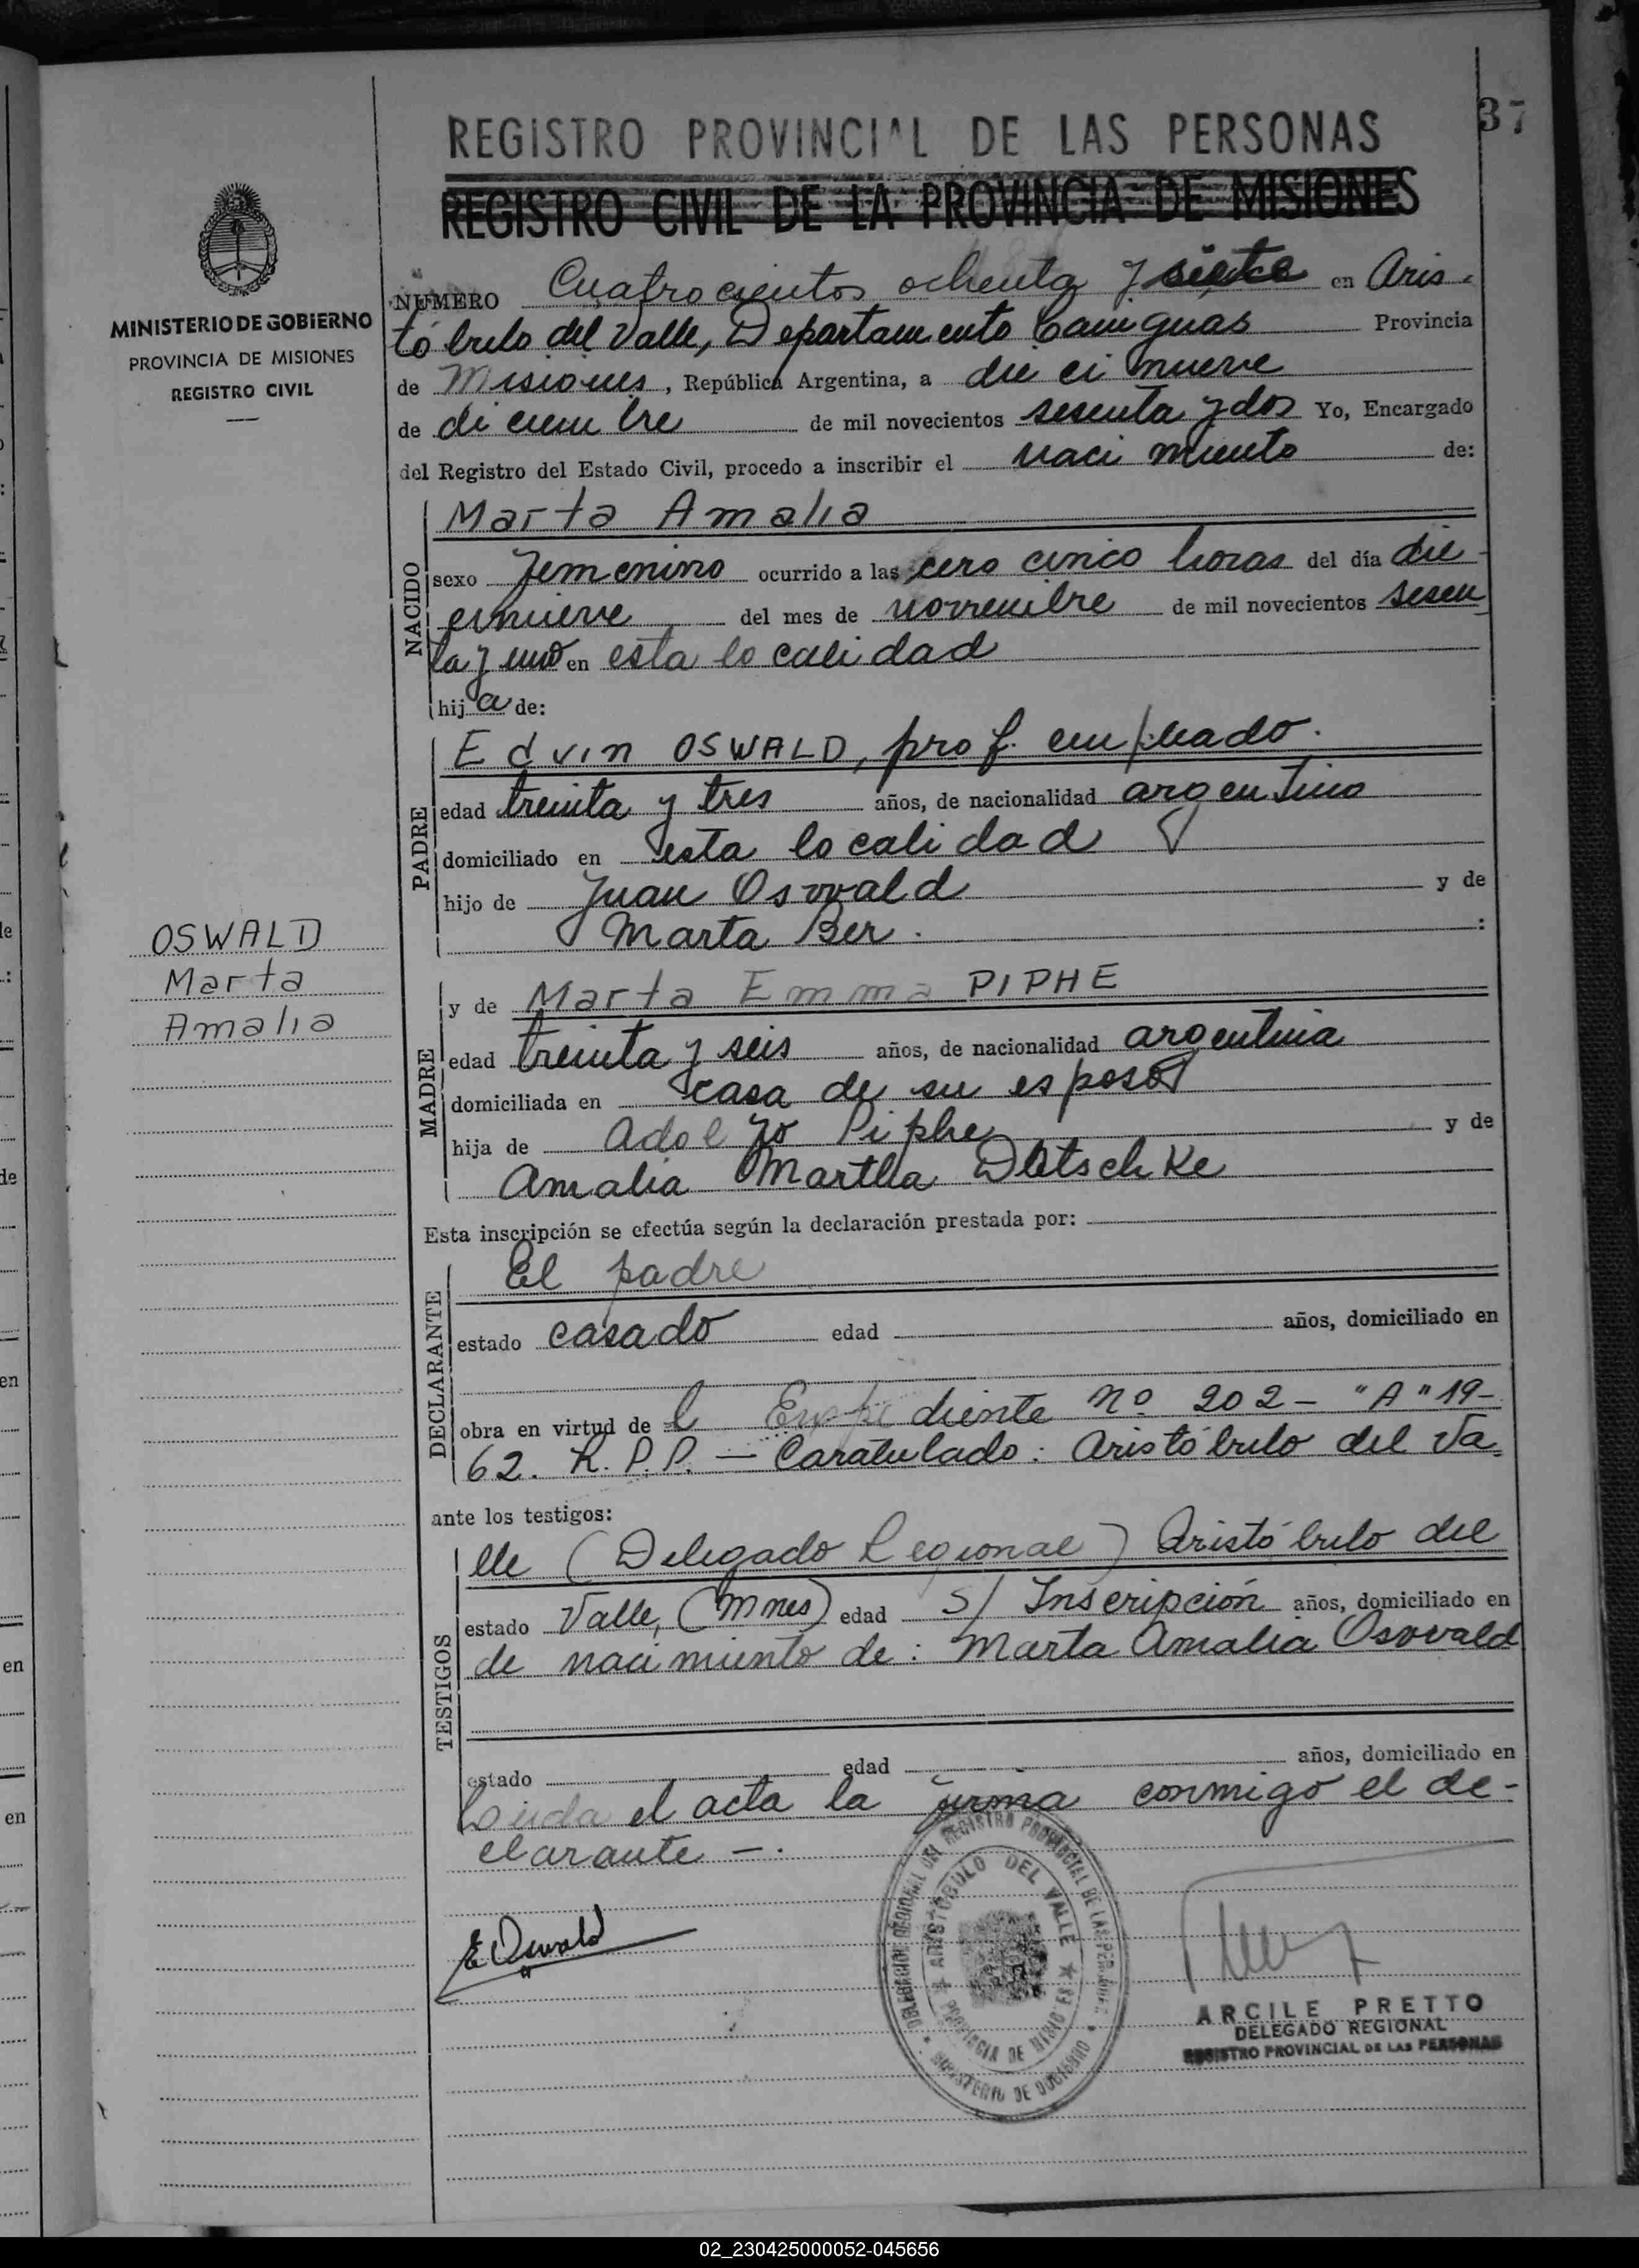 37
REGISTRO PROVINCIAL DE LAS PERSONAS
REGISTRO CIVIL DE LA PROVINCIA DE MISIONES
MINISTERIO DE GOBIERNO
PROVINCIA DE MISIONES
REGISTRO CIVIL
NUMERO Cuatrocientos ochenta y siete en Aris-
tóbulo del Valle, Departamento Cainguas Provincia
de Misiones, República Argentina, a die ci nueve
de diciembre de mil novecientos sesenta y dos Yo, Encargado
del Registro del Estado Civil, procedo a inscribir el nacimiento de:
NACIDO
Marta Amalia
sexo femenino ocurrido a las cero cinco horas del día die
cinueve del mes de noviembre de mil novecientos sesen
ta y uno en esta localidad
hija de:
PADRE
Edvin OSWALD, prof. empleado.
edad treinta y tres años, de nacionalidad argentino
domiciliado en esta localidad
hijo de Juan Oswald y de
Marta Ber. :
OSWALD
Marta
Amalia
MADRE
y de Marta Emma PIPHE
edad treinta y seis años, de nacionalidad argentina
domiciliada en casa de su esposo
hija de Adolfo Piphe y de
Amalia Martha
Esta inscripción se efectúa según la declaración prestada por:
DECLARANTE
El padre
estado casado edad años, domiciliado en
obra en virtud del Expediente Nº 202- "A" 19-
62. R.P.P. - Caratulado: Aristóbulo del Va
ante los testigos:
TESTIGOS
lle (Delegado Regional) Aristóbulo del
estado Valle, (Mnes) edad S/ Inscripción años, domiciliado en
de nacimiento de: Marta Amalia Oswald
estado edad años, domiciliado en
Leida el acta la firma conmigo el de-
clarante -.
E Oswald
DELEGACION REGIONAL DEL REGISTRO PROVINCIAL DE LAS PERSONAS
ARISTOBULO DEL VALLE
PROVINCIA DE MISIONES
MINISTERIO DE GOBIERNO
ARCILE PRETTO
DELEGADO REGIONAL
REGISTRO PROVINCIAL DE LAS PERSONAS
02_230425000052-045656